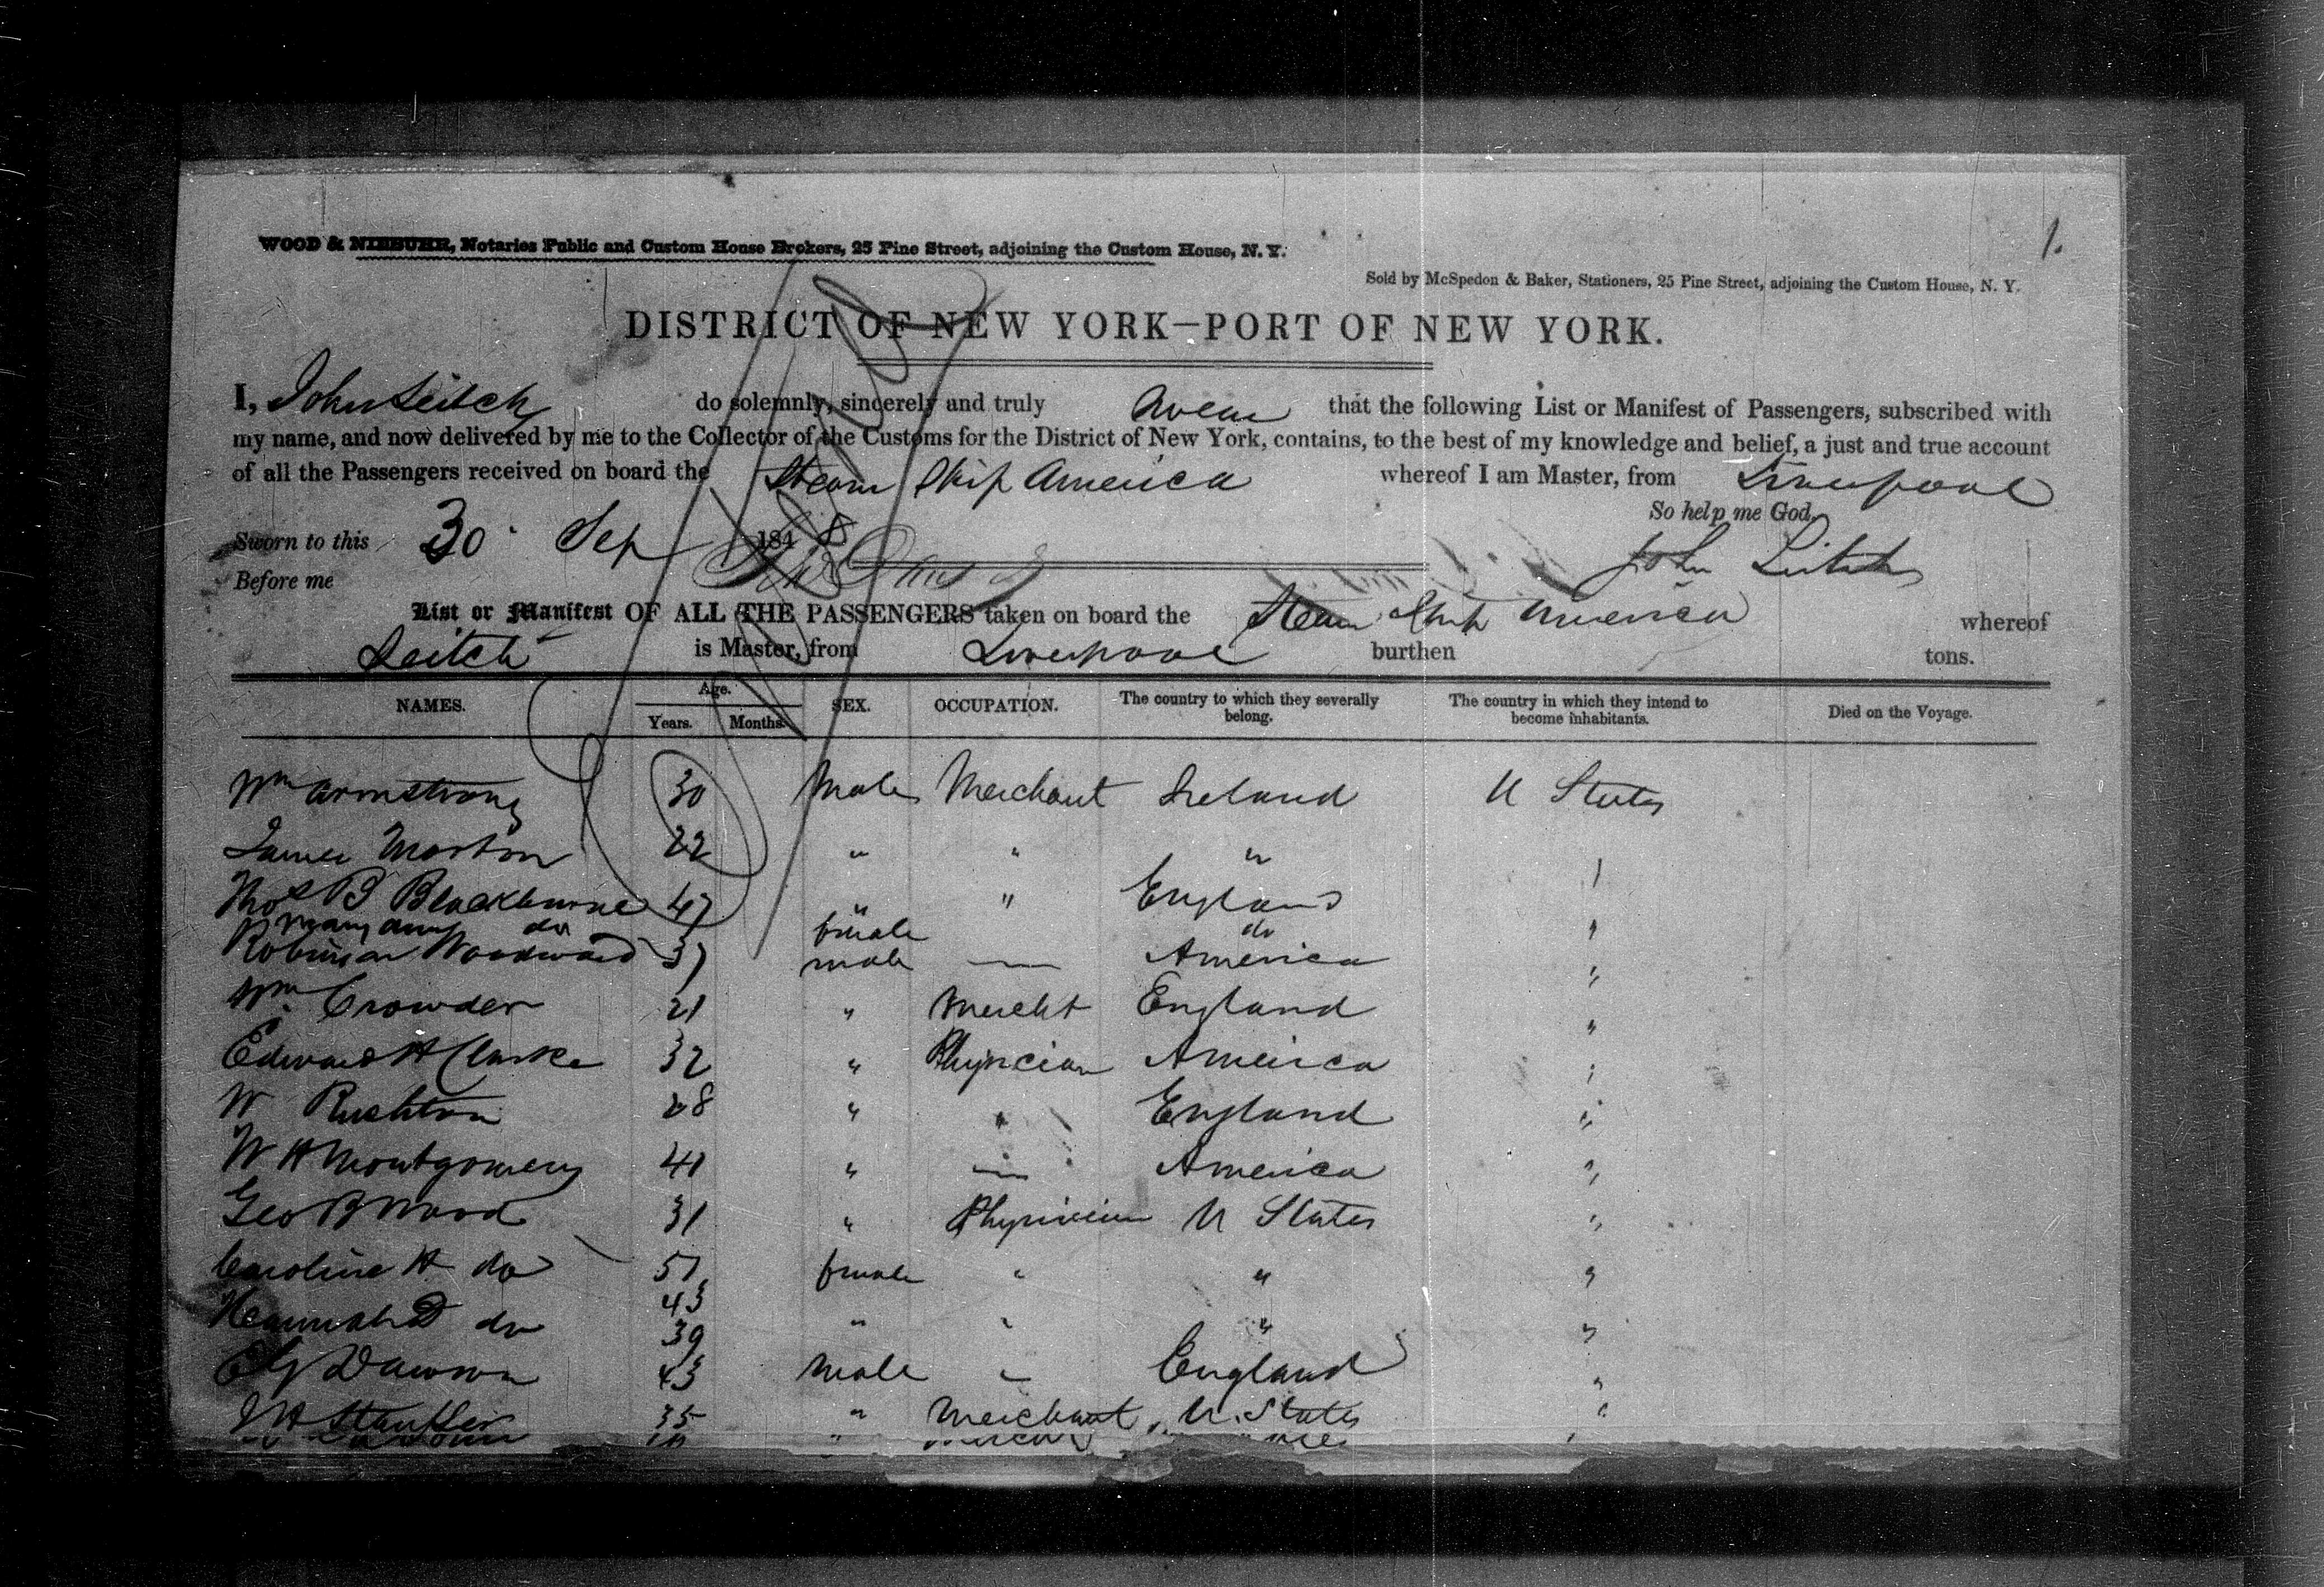 1.
WOOD & NIEBUHR, Notaries Public and Custom House Brokers, 25 Pine Street, adjoining the Custom House, N. Y.
Sold by McSpedon & Baker, Stationers, 25 Pine Street, adjoining the Custom House, N. Y.
DISTRICT OF NEW YORK—PORT OF NEW YORK.
I, John Leitch do solemnly, sincerely and truly swear that the following List or Manifest of Passengers, subscribed with
my name, and now delivered by me to the Collector of the Customs for the District of New York, contains, to the best of my knowledge and belief, a just and true account
of all the Passengers received on board the Steam Ship America whereof I am Master, from Liverpool
So help me God.
Sworn to this 30 Sep 1848 John Leitch
Before me
List or Manifest OF ALL THE PASSENGERS taken on board the Steam Ship America whereof
Leitch is Master, from Liverpool burthen tons.
NAMES. Age. Years. Months. SEX. OCCUPATION. The country to which they severally belong. The country in which they intend to become inhabitants. Died on the Voyage.
Wm Armstrong 30 Male Merchant Ireland U States
James Morton 22 " " "
Thos B Blackburne 47 " " England
Mary Ann do female do "
Robinson Woodward 37 male — America "
Wm Crowder 21 " Mercht England "
Edward H Clarke 32 " Physician America "
W Rushton 28 " " England "
W H Montgomery 41 " — America "
Geo B Wood 31 " Physician U States "
Caroline H do 51 female " " "
43
Hannah D do 39 " " " "
E G Dawson 43 Male " England "
J H Stauffer 35 " Merchant U. States "